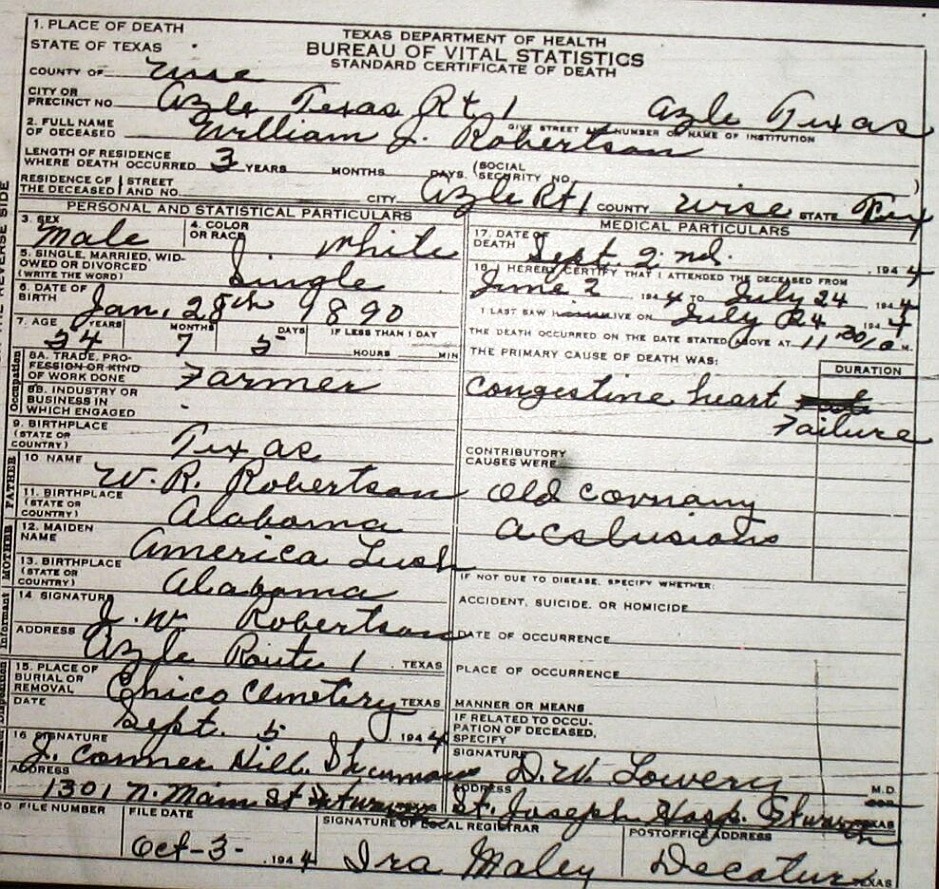 TEXAS DEPARTMENT OF HEALTH
BUREAU OF VITAL STATISTICS
STANDARD CERTIFICATE OF DEATH
1. PLACE OF DEATH
STATE OF TEXAS
COUNTY OF Wise
CITY OR PRECINCT NO. Azle Texas Rt 1 Azle Texas
GIVE STREET AND NUMBER OR NAME OF INSTITUTION
2. FULL NAME OF DECEASED William J. Robertson
LENGTH OF RESIDENCE WHERE DEATH OCCURRED 3 YEARS MONTHS DAYS. (SOCIAL SECURITY NO. )
RESIDENCE OF THE DECEASED STREET AND NO. CITY Azle Rt 1 COUNTY Wise STATE Tex
PERSONAL AND STATISTICAL PARTICULARS
3. SEX Male
4. COLOR OR RACE White
5. SINGLE, MARRIED, WIDOWED OR DIVORCED (WRITE THE WORD) Single
6. DATE OF BIRTH Jan. 28th 1890
7. AGE YEARS 54 MONTHS 7 DAYS 5 IF LESS THAN 1 DAY HOURS MIN
Occupation
8A. TRADE, PROFESSION OR KIND OF WORK DONE Farmer
8B. INDUSTRY OR BUSINESS IN WHICH ENGAGED -
9. BIRTHPLACE (STATE OR COUNTRY) Texas
FATHER
10 NAME W. R. Robertson
11. BIRTHPLACE (STATE OR COUNTRY) Alabama
MOTHER
12. MAIDEN NAME America Lush
13. BIRTHPLACE (STATE OR COUNTRY) Alabama
Informant
14 SIGNATURE J. W. Robertson
ADDRESS Azle Route 1 TEXAS
15. PLACE OF BURIAL OR REMOVAL Chico Cemetery TEXAS
DATE Sept. 5 1944
16 SIGNATURE J. Conner Hill
ADDRESS 1301 N. Main St
MEDICAL PARTICULARS
17. DATE OF DEATH Sept. 2nd. 1944
18. I HEREBY CERTIFY THAT I ATTENDED THE DECEASED FROM
June 2 1944 TO July 24 1944
I LAST SAW ALIVE ON July 24 1944
THE DEATH OCCURRED ON THE DATE STATED ABOVE AT 11 M.
THE PRIMARY CAUSE OF DEATH WAS: DURATION
Congestine heart
Failure
CONTRIBUTORY CAUSES WERE
old
IF NOT DUE TO DISEASE, SPECIFY WHETHER:
ACCIDENT, SUICIDE, OR HOMICIDE
DATE OF OCCURRENCE
PLACE OF OCCURRENCE
MANNER OR MEANS
IF RELATED TO OCCUPATION OF DECEASED, SPECIFY
SIGNATURE D. W. Lowery M.D.
ADDRESS St. Joseph Hosp. TEXAS
20 FILE NUMBER
FILE DATE Oct-3- 1944
SIGNATURE OF LOCAL REGISTRAR Ira Maley
POSTOFFICE ADDRESS Decatur TEXAS
REVERSE SIDE